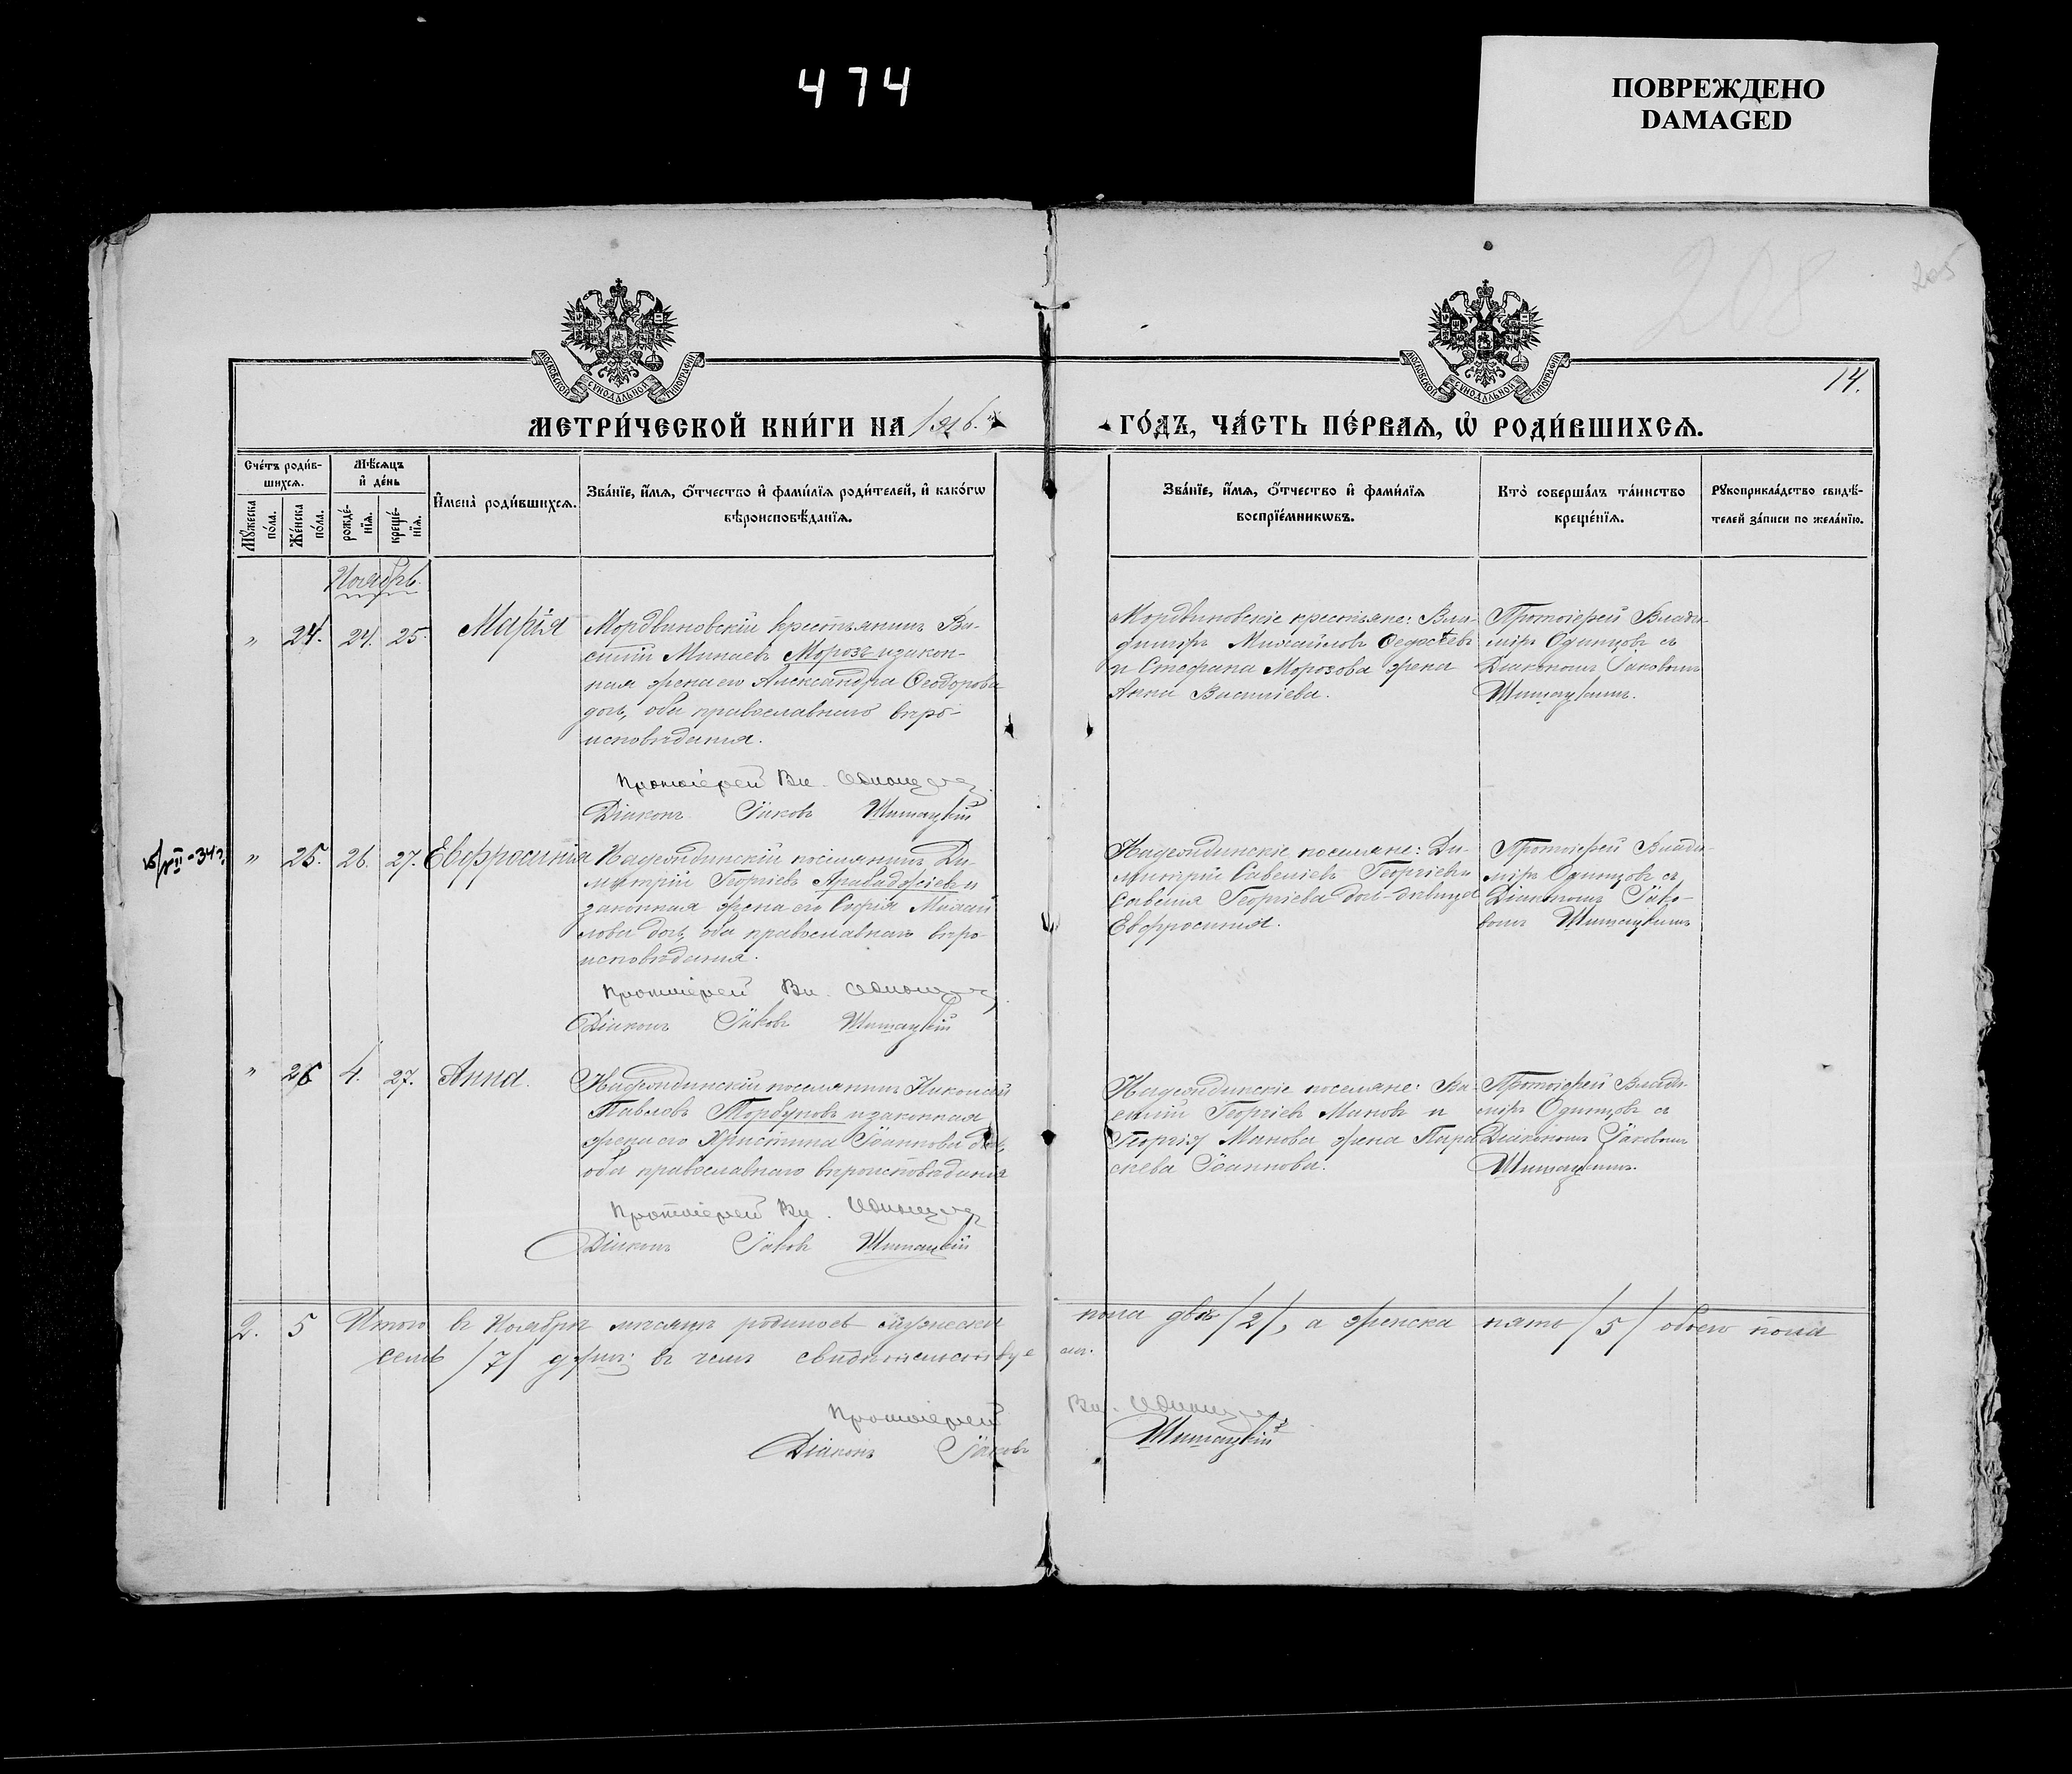 474
ПОВРЕЖДЕНО
DAMAGED
208
205
14.
МОСКОВСКОЙ СѴНОДАЛЬНОЙ ТИПОГРАФІИ
МОСКОВСКОЙ СѴНОДАЛЬНОЙ ТИПОГРАФІИ
МЕТРИ́ЧЕСКОЙ КНИ́ГИ НА 1916.й
ГО́ДЪ, ЧА́СТЬ ПЕ́РВАѦ, Ѡ҆ РОДИ́ВШИХСѦ.
Сче́тъ роди́в-
шихсѧ.
Мѣ́сѧцъ
и҆ де́нь
Мꙋ́жеска
по́ла.
Же́нска
по́ла.
рожде́-
нїѧ.
креще́-
нїѧ.
И҆мена̀ роди́вшихсѧ.
Зва́нїе, и҆́мѧ, ѻ҆́тчество и҆ фами́лїѧ роди́телей, и҆ како́гѡ
вѣроисповѣ́данїѧ.
Зва́нїе, и҆́мѧ, ѻ҆́тчество и҆ фами́лїѧ
воспрїе́мникѡвъ.
Кто̀ соверша́лъ та́инство
креще́нїѧ.
Рꙋкоприкла́дство свидѣ́-
телей за́писи по жела́нїю.
Ноябрь.
" 24. 24. 25. Марія
Мордвиновскій крестьянинъ Ва-
силій Минаевъ Морозъ и закон-
ная жена его Александра Ѳеодорова
дочь, оба православнаго вѣро-
исповѣданія.
Протоіерей Вл. Одинцовъ
Діаконъ Іаковъ Шишацкій
Мордвиновскіе крестьяне: Вла-
димиръ Михайловъ Ѳедосѣевъ
и Стефана Морозова жена
Анна Василіева.
Протоіерей Влади-
міръ Одинцовъ съ
Діакономъ Іаковомъ
Шишацкимъ.
" 25. 26. 27. Евфросинія
Надеждинскій поселянинъ Ди-
митрій Георгіевъ Арабаджіевъ и
законная жена его Софія Михаи-
лова дочь, оба православнаго вѣро-
исповѣданія.
Протоіерей Вл. Одинцовъ
Діаконъ Іаковъ Шишацкій
Надеждинскіе поселяне: Ди-
митрій Савеліевъ Георгіевъ и
Савелія Георгіева дочь-дѣвица
Евфросинія.
Протоіерей Влади-
міръ Одинцовъ съ
Діакономъ Іако-
вомъ Шишацкимъ
" 26 4. 27. Анна.
Надеждинскій поселянинъ Николай
Павловъ Торбуновъ и законная
жена его Христина Іоаннова дочь,
оба православнаго вѣроисповѣданія
Протоіерей Вл. Одинцовъ
Діаконъ Іаковъ Шишацкій
Надеждинскіе поселяне: Ва-
силій Георгіевъ Миковъ и
Георгія Микова жена Пара
скева Іоаннова.
Протоіерей Влади-
міръ Одинцовъ съ
Діакономъ Іаковомъ
Шишацкимъ.
2. 5 Итого въ Ноябрѣ мѣсяцѣ родилось мужеска пола два /2/, а женска пять /5/ обоего пола
семь /7/ душъ въ чемъ свидѣтельствуемъ.
Протоіерей Вл. Одинцовъ
Діаконъ Іаковъ Шишацкій